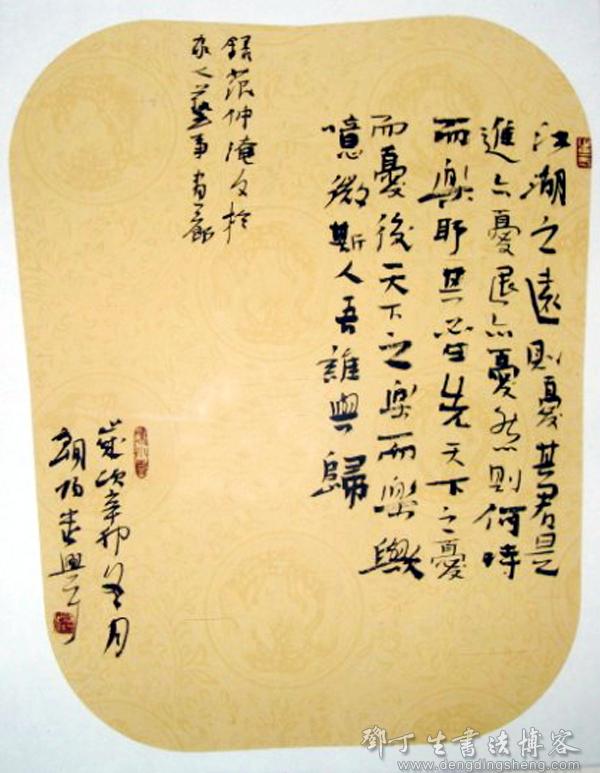 江湖之遠則憂其君是
進亦憂退亦憂然則何時
而樂耶其必先天下之憂
而憂後天下之樂而樂歟
噫微斯人吾誰與歸
錄范仲淹文於
京人藝事畫廊
歲次辛卯冬月
鄧丁生書法博客
www.dengdingsheng.com